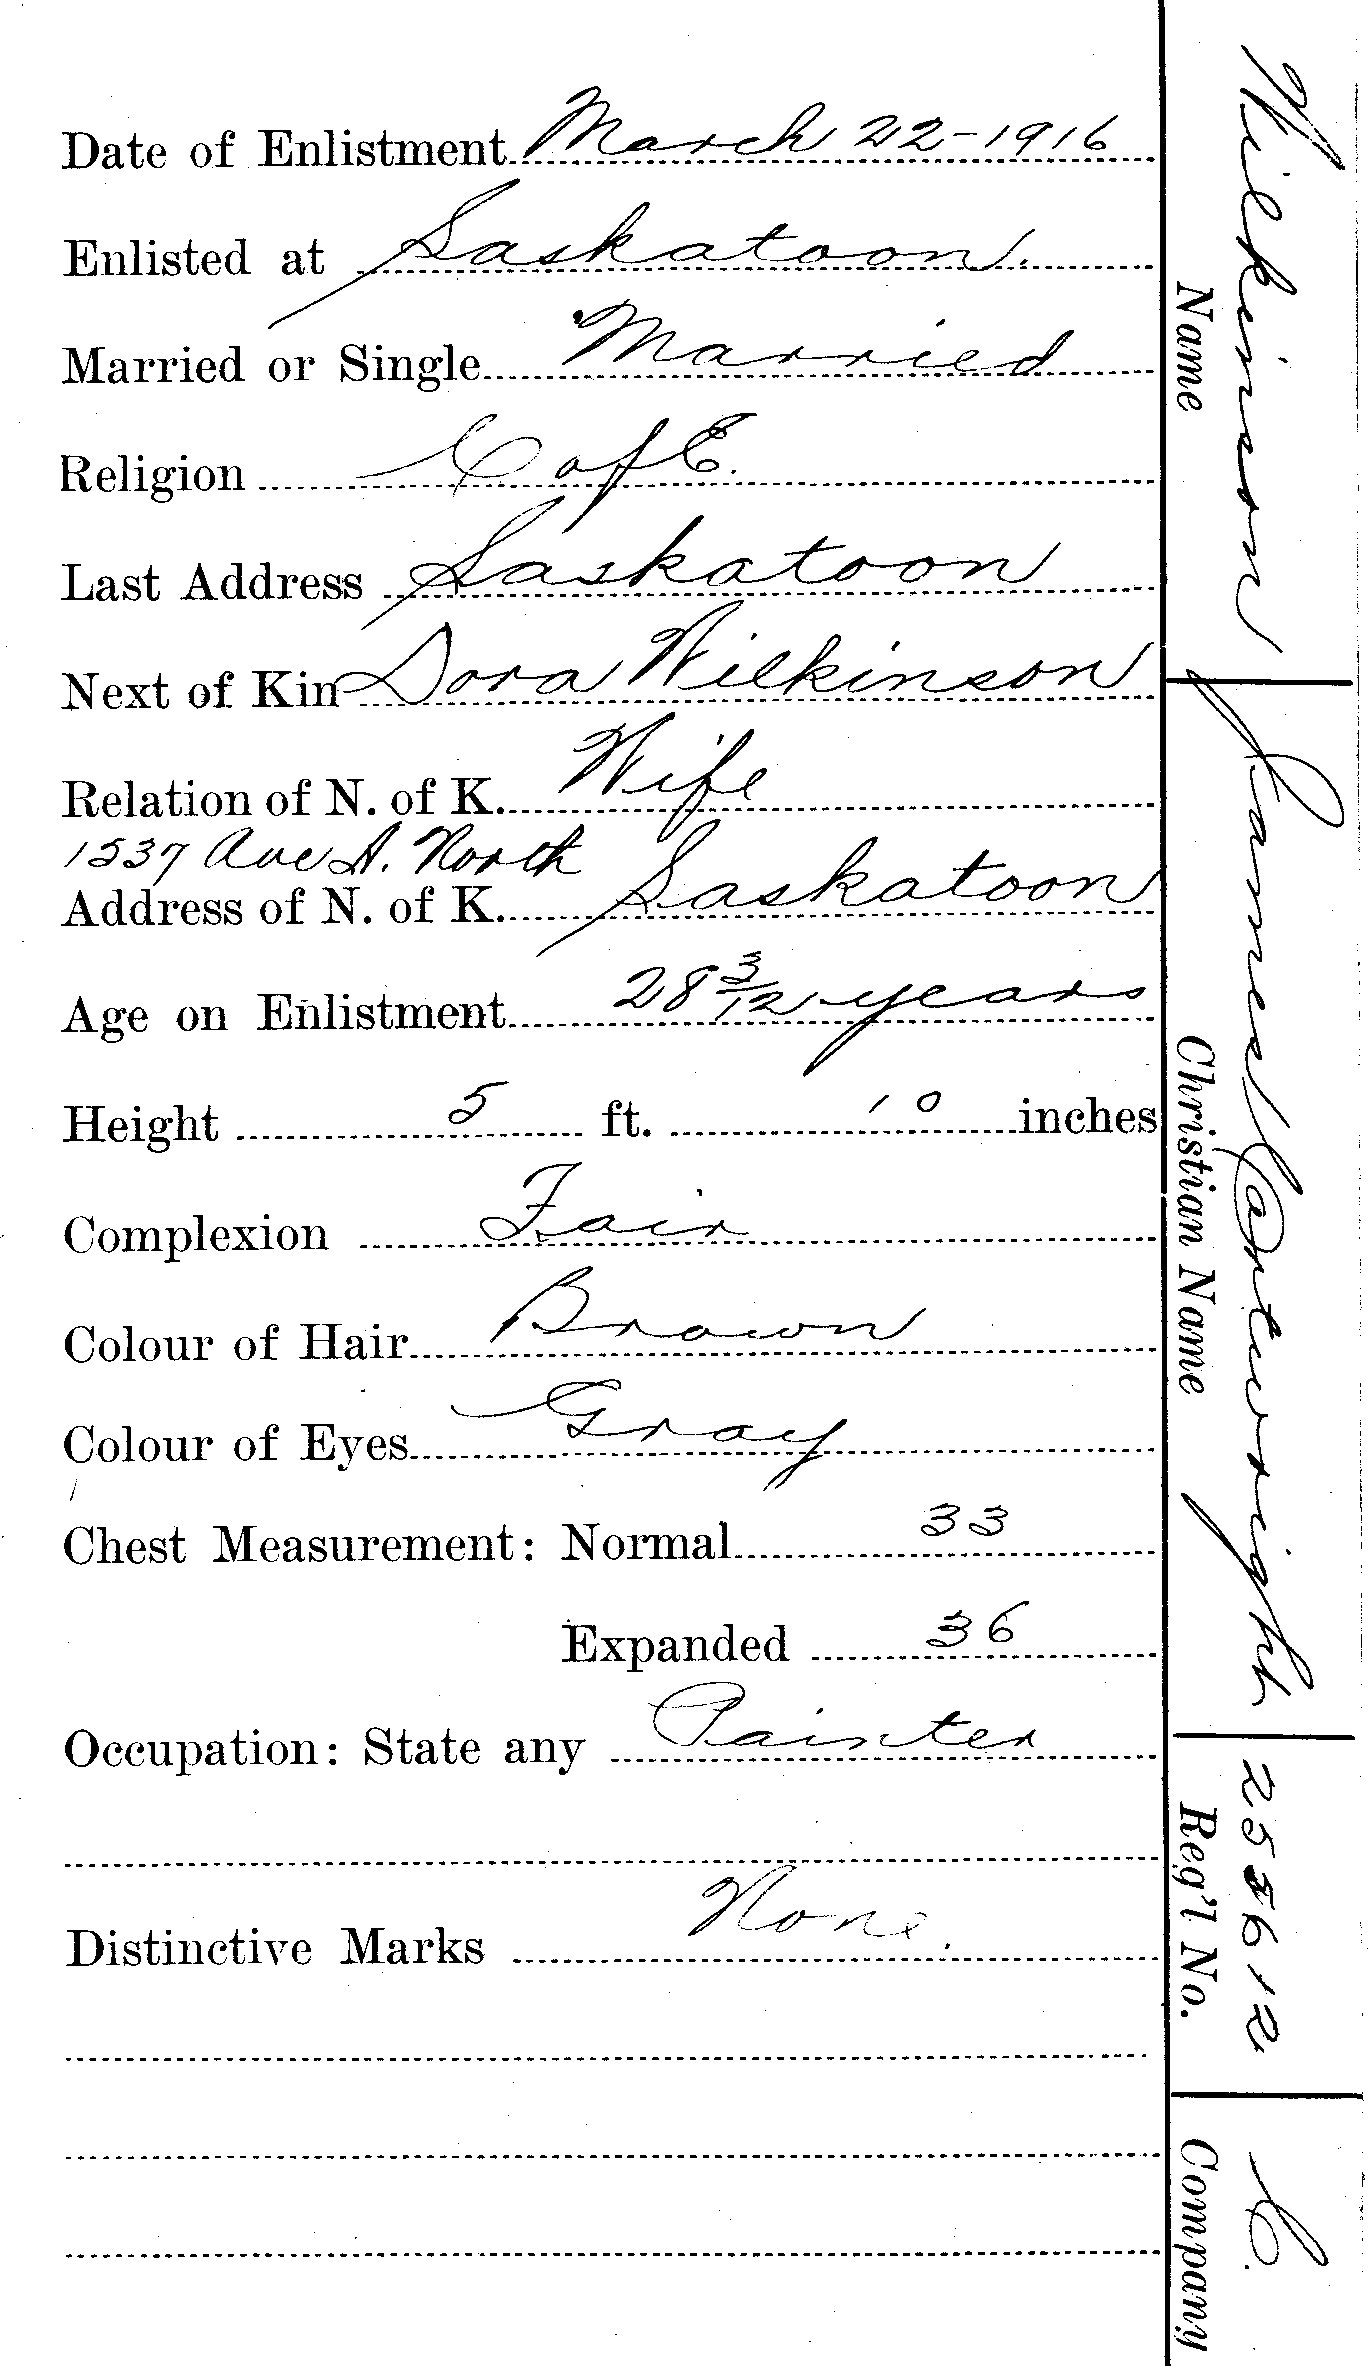 Date of Enlistment March 22-1916
Enlisted at Saskatoon.
Married or Single Married
Religion C of E.
Last Address Saskatoon
Next of Kin Dora Wilkinson
Relation of N. of K. Wife
1537 Ave A. North
Address of N. of K. Saskatoon
Age on Enlistment 28 3/12 years
Height 5 ft. 10 inches
Complexion Fair
Colour of Hair Brown
Colour of Eyes Gray
Chest Measurement: Normal 33
Expanded 36
Occupation: State any Painter
Distinctive Marks None.
Wilkinson
Name
James Cartwright
Christian Name
255612
Reg'l No.
C.
Company